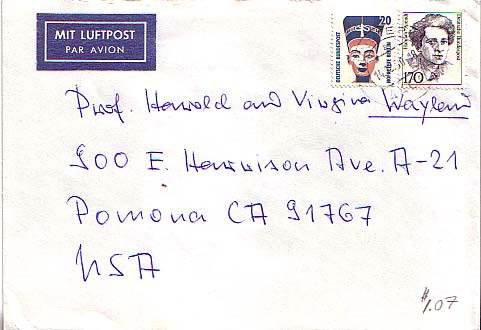 MIT LUFTPOST
PAR AVION
20
DEUTSCHE BUNDESPOST
NOFRETETE BERLIN
170
Prof. Harold and Virginia Wayland
900 E. Harrison Ave. A-21
Pomona CA 91767
USA
#1.07